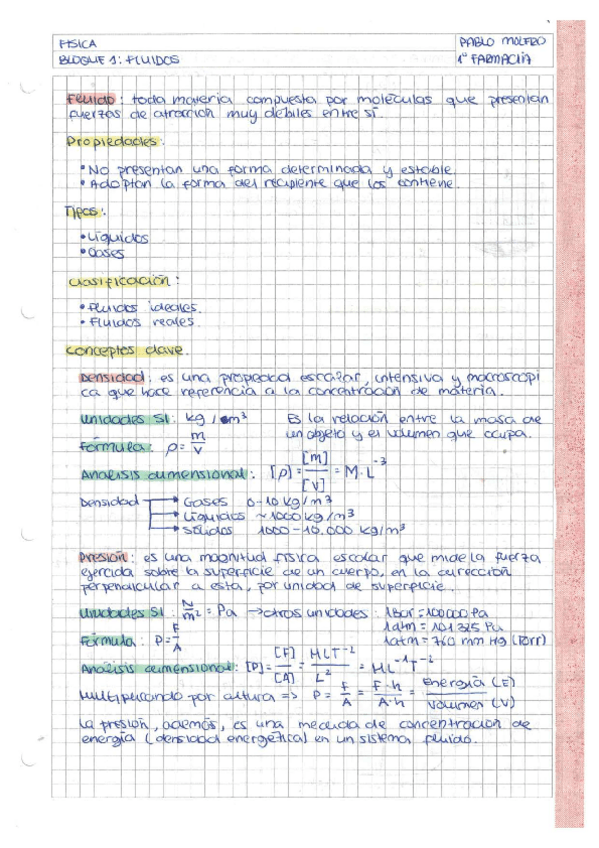 FISICA
PABLO MOLERO
BLOQUE 1: FLUIDOS
1º FARMACIA
Fluido: toda materia compuesta por moléculas que presentan
fuerzas de atracción muy débiles entre sí.
Propiedades:
• No presentan una forma determinada y estable.
• Adoptan la forma del recipiente que los contiene.
Tipos:
• Líquidos
• Gases
Clasificación:
• Fluidos ideales.
• Fluidos reales.
Conceptos clave.
Densidad: es una propiedad escalar, intensiva y macroscópi
ca que hace referencia a la concentración de materia.
Unidades SI: kg/m³
Es la relación entre la masa de
un objeto y el volumen que ocupa.
Fórmula: ρ = m/V
Análisis dimensional: [ρ] = [m]/[V] = M·L⁻³
Densidad → Gases 0-10 kg/m³
→ Líquidos ~1000 kg/m³
→ Sólidos 1000-10.000 kg/m³
Presión: es una magnitud física escalar que mide la fuerza
ejercida sobre la superficie de un cuerpo, en la dirección
perpendicular a esta, por unidad de superficie.
Unidades SI: N/m² = Pa → otras unidades: 1 Bar = 100000 Pa
1 atm = 101325 Pa
Fórmula: P = F/A
1 atm = 760 mm Hg (Torr)
Análisis dimensional: [P] = [F]/[A] = MLT⁻²/L² = ML⁻¹T⁻²
Multiplicando por altura => P = F/A = F·h/A·h = Energía (E)/Volumen (V)
La presión, además, es una medida de concentración de
energía (densidad energética) en un sistema fluido.